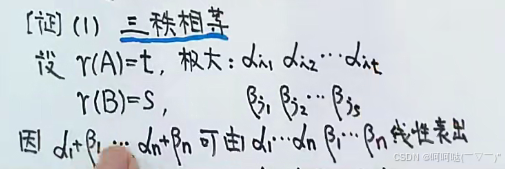 [证] (1) 三秩相等
设 r(A)=t, 极大: αi1 αi2 ⋯ αit
r(B)=s, βj1 βj2 ⋯ βjs
因 α1+β1 ⋯ αn+βn 可由 α1⋯αn β1⋯βn 线性表出
CSDN @呵呵哒(￣▽￣)"